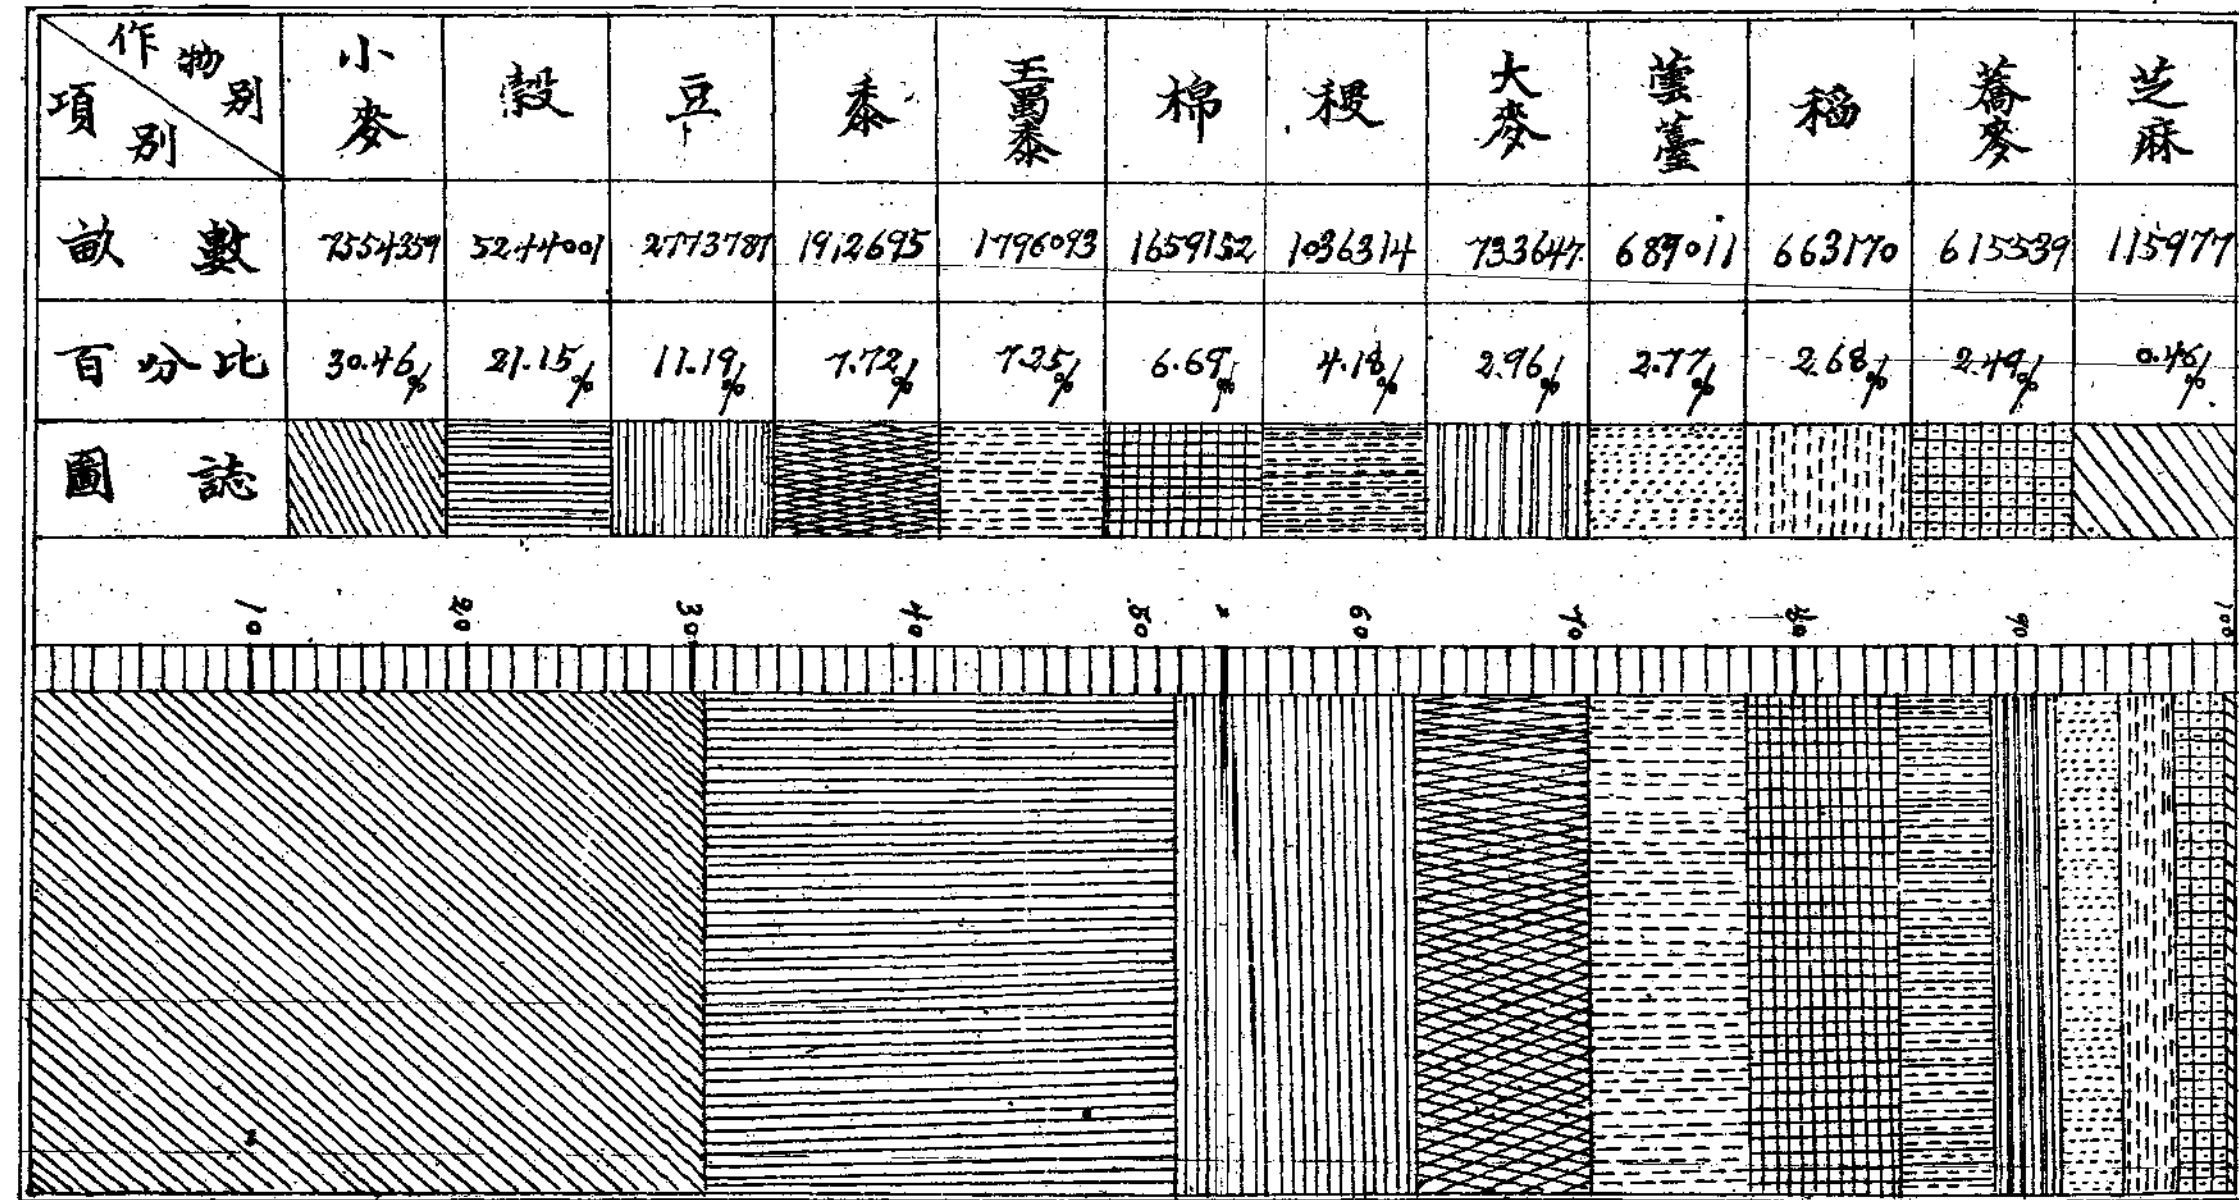 作物別 項別 小麥 穀 豆 黍 玉蜀黍 棉 稷 大麥 蕓薹 稻 蕎麥 芝麻
畝數 7554359 5244001 2773787 1912695 1796093 1659152 1036314 733647 689011 663170 615539 115977
百分比 30.46% 21.15% 11.19% 7.72% 7.25% 6.69% 4.18% 2.96% 2.77% 2.68% 2.49% 0.46%
圖誌
10 20 30 40 50 60 70 80 90 100